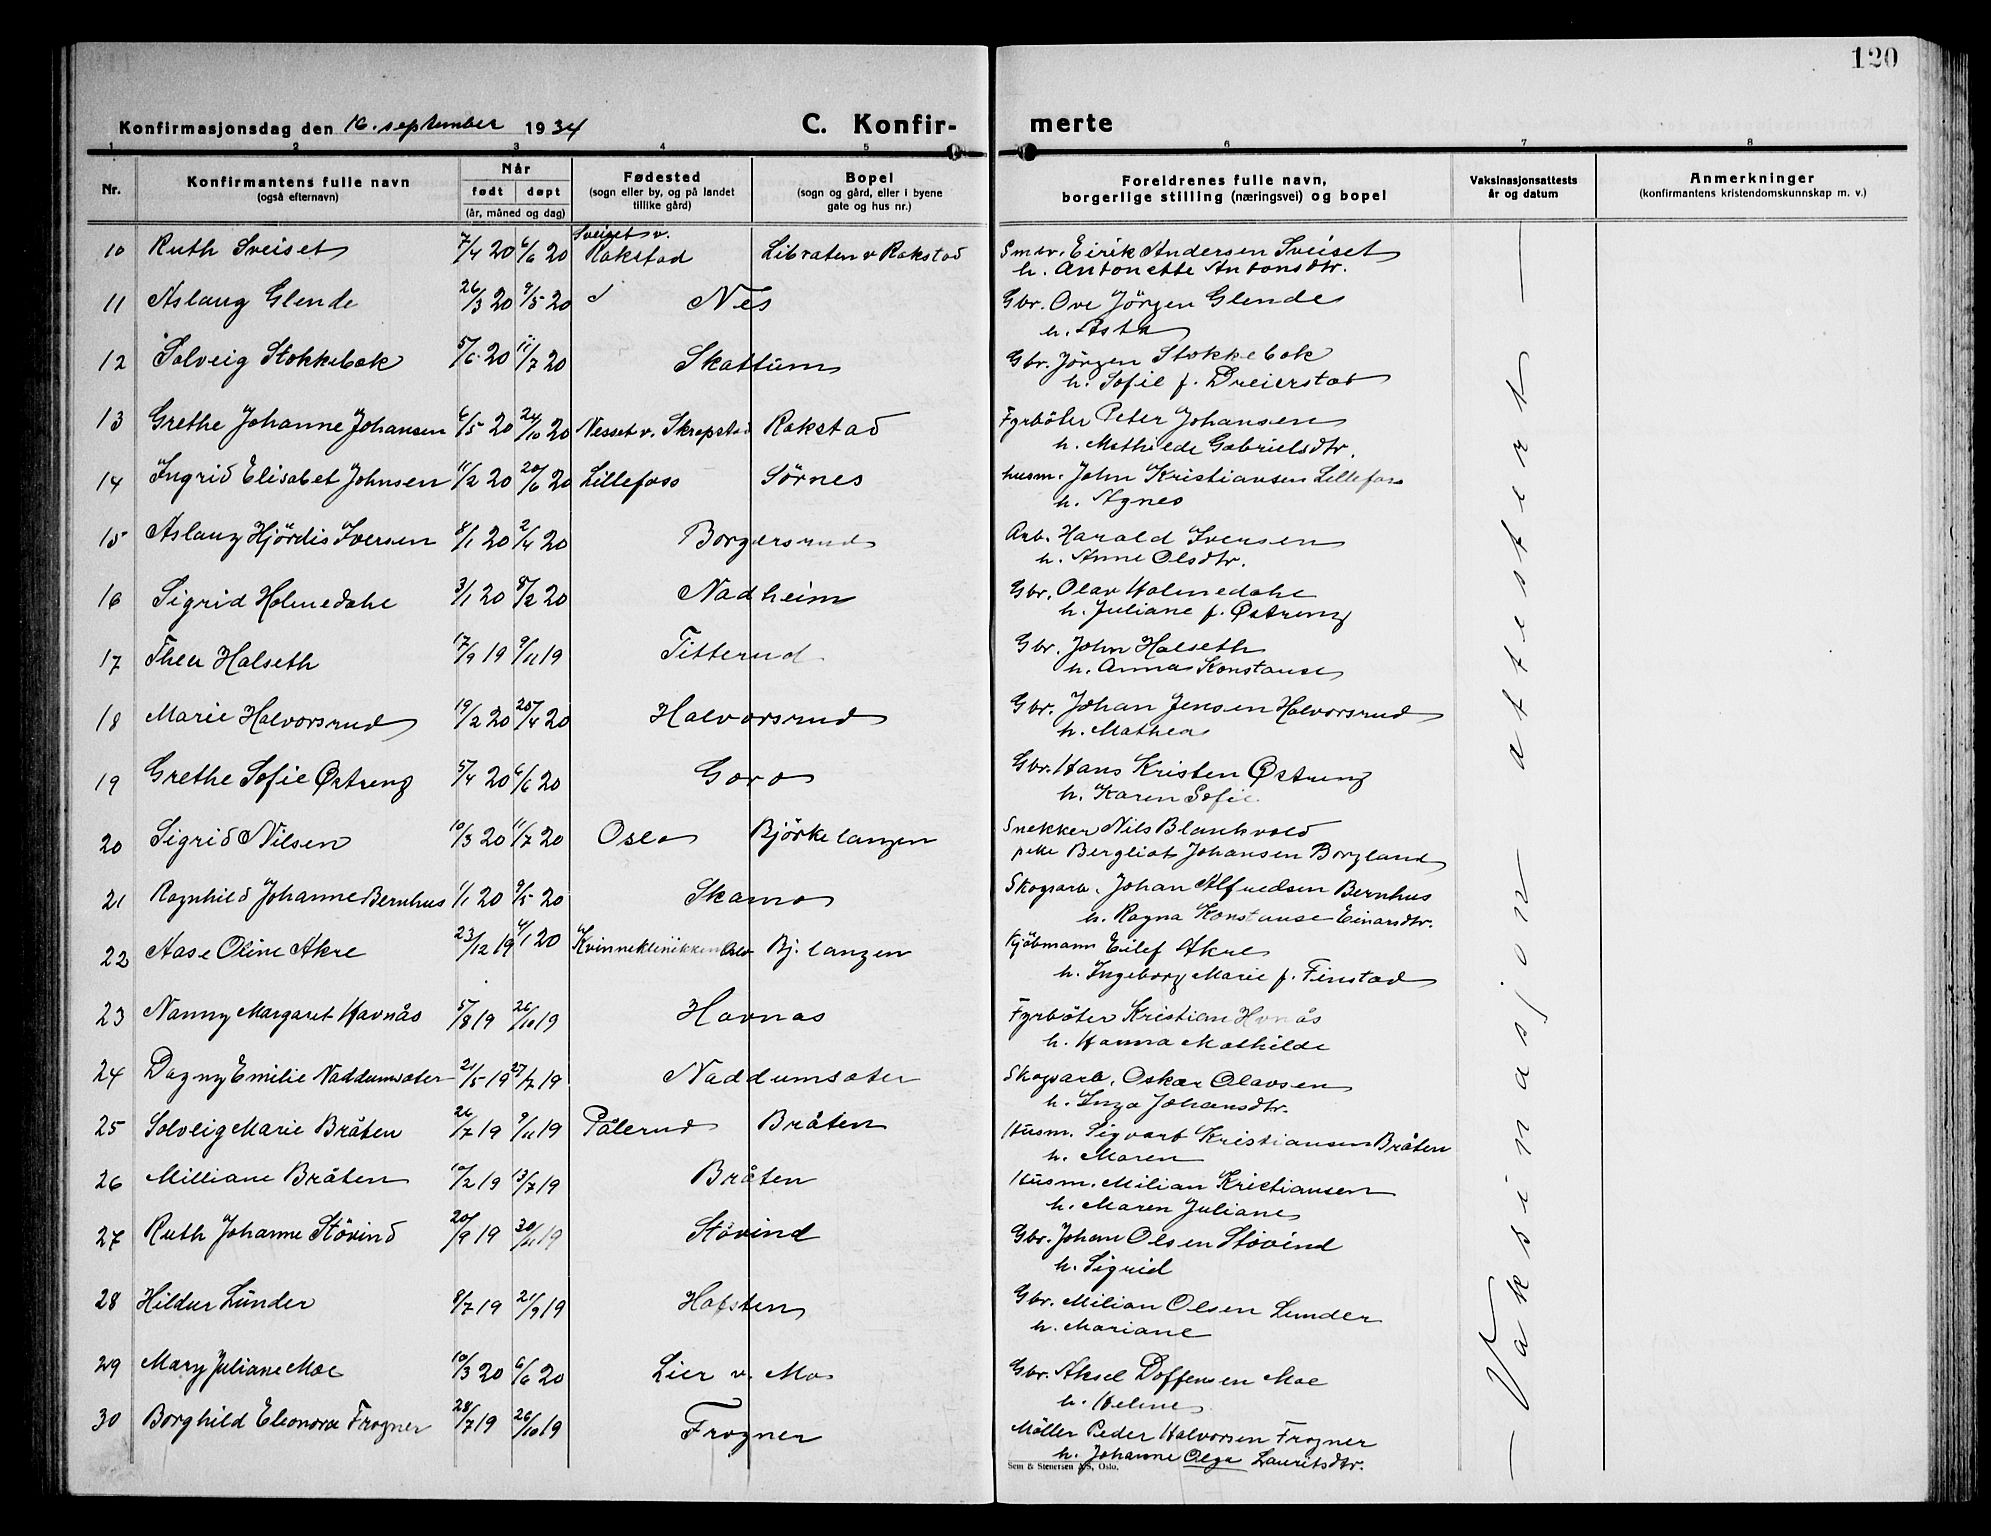 120
Konfirmasjonsdag den 16. september 1934 C. Konfir- merte
1 2 3 4 5 6 7 8
Nr. Konfirmantens fulle navn (også efternavn) Når født døpt (år, måned og dag) Fødested (sogn eller by, og på landet tillike gård) Bopel (sogn og gård, eller i byene gate og hus nr.) Foreldrenes fulle navn, borgerlige stilling (næringsvei) og bopel Vaksinasjonsattests år og datum Anmerkninger (konfirmantens kristendomskunnskap m. v.)
10 Ruth Sveiset 7/4 20 6/6 20 Sveiset v. Rakstad Libraten v Rakstad Smbr. Eirik Andersen Sveiset
h. Antonette Antonsdtr.
11 Aslaug Glende 26/3 20 9/5 20 Nes Gbr. Ove Jörgen Glende
h. Asta
12 Solveig Stokkebæk 5/6 20 11/7 20 Skattum Gbr. Jörgen Stokkebæk
h. Sofie f. Dreierstad
13 Grethe Johanne Johansen 6/5 20 24/10 20 Nesset v. Skrepstad Rakstad Fyrböter Peter Johansen
h. Mathilde Gabrielsdtr.
14 Ingrid Elisabet Johnsen 11/2 20 20/6 20 Lillefoss Sörnes husm. John Kristiansen Lillefoss
h. Agnes
15 Aslaug Hjördis Iversen 8/1 20 2/4 20 Borgersrud Arb. Harald Iversen
h. Anne Olsdtr.
16 Sigrid Holmedahl 3/1 20 8/2 20 Nadheim Gbr. Olav Holmedahl
h. Juliane f. Østreng
17 Thea Halseth 17/9 19 9/11 19 Titterud Gbr. John Halseth
h. Anna Konstanse
18 Marie Halvorsrud 19/2 20 25/4 20 Halvorsrud Gbr. Johan Jensen Halvorsrud
h. Mathea
19 Grethe Sofie Østreng 5/4 20 6/6 20 Goro Gbr. Hans Kristen Østreng
h. Karen Sofie
20 Sigrid Nilsen 10/3 20 11/7 20 Oslo Björkelangen Snekker Nils Blankvold
pike Bergliot Johansen Borgland
21 Ragnhild Johanne Bernhus 1/1 20 9/5 20 Skamo Skogsarb. Johan Alfredsen Bernhus
h. Ragna Konstanse Einarsdtr.
22 Aase Oline Akre 23/12 19 4/1 20 Kvinneklinikken Oslo Bj. langen Kjöbmann Eilef Akre
h. Ingeborg Marie f. Finstad
23 Nanny Margaret Havnås 5/8 19 26/10 19 Havnas Fyrböter Kristian Havnås
h. Hanna Mathilde
24 Dagny Emilie Naddumsæter 21/5 19 27/7 19 Naddumsæter Skogsarb. Oskar Olavsen
h. Inga Johansdtr.
25 Solveig Marie Bråten 26/7 19 9/11 19 Pålerud Bråten Husm. Sigvart Kristiansen Bråten
h. Maren
26 Milliane Bråten 10/2 19 13/7 19 Bråten Husm. Milian Kristiansen
h. Maren Juliane
27 Ruth Johanne Stövind 20/9 19 30/11 19 Stövind Gbr. Johan Olsen Stövind
h. Sigrid
28 Hildur Lunder 8/7 19 21/9 19 Hofsten Gbr. Milian Olsen Lunder
h. Mariane
29 Mary Juliane Moe 10/3 20 6/6 20 Lier v. Mo Gbr. Aksel Doffensen Moe
h. Helene
30 Borghild Eleonora Frogner 28/7 19 26/10 19 Frogner Möller Peder Halvorsen Frogner
h. Johanne Olga Lauritsdtr.
— Vaksinasjon attestert —
Sem & Stenersen A/S, Oslo.